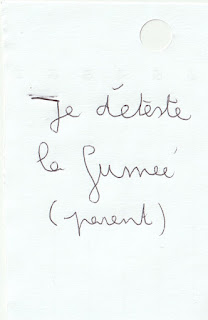 Je déteste
la fumeé
(parent)